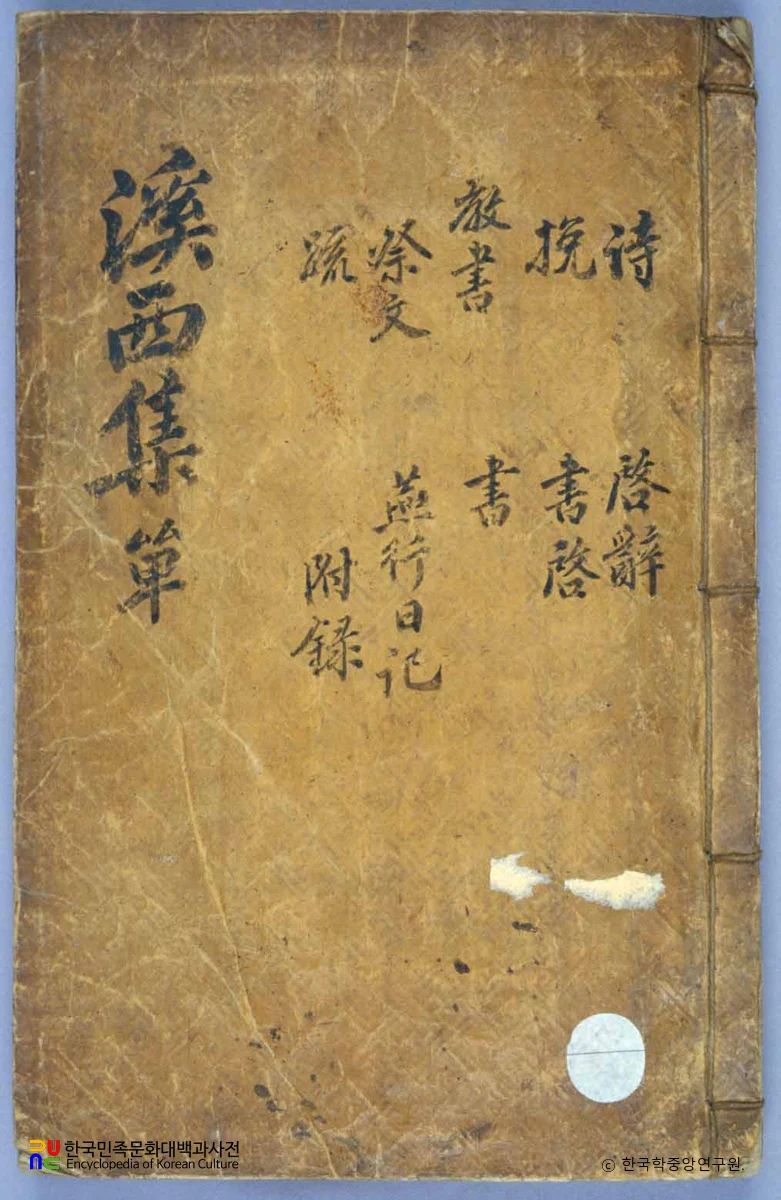 詩 啓辭
挽 書啓
敎書 書
祭文 燕行日記
疏 附錄
溪西集 單
한국민족문화대백과사전
Encyclopedia of Korean Culture
© 한국학중앙연구원.